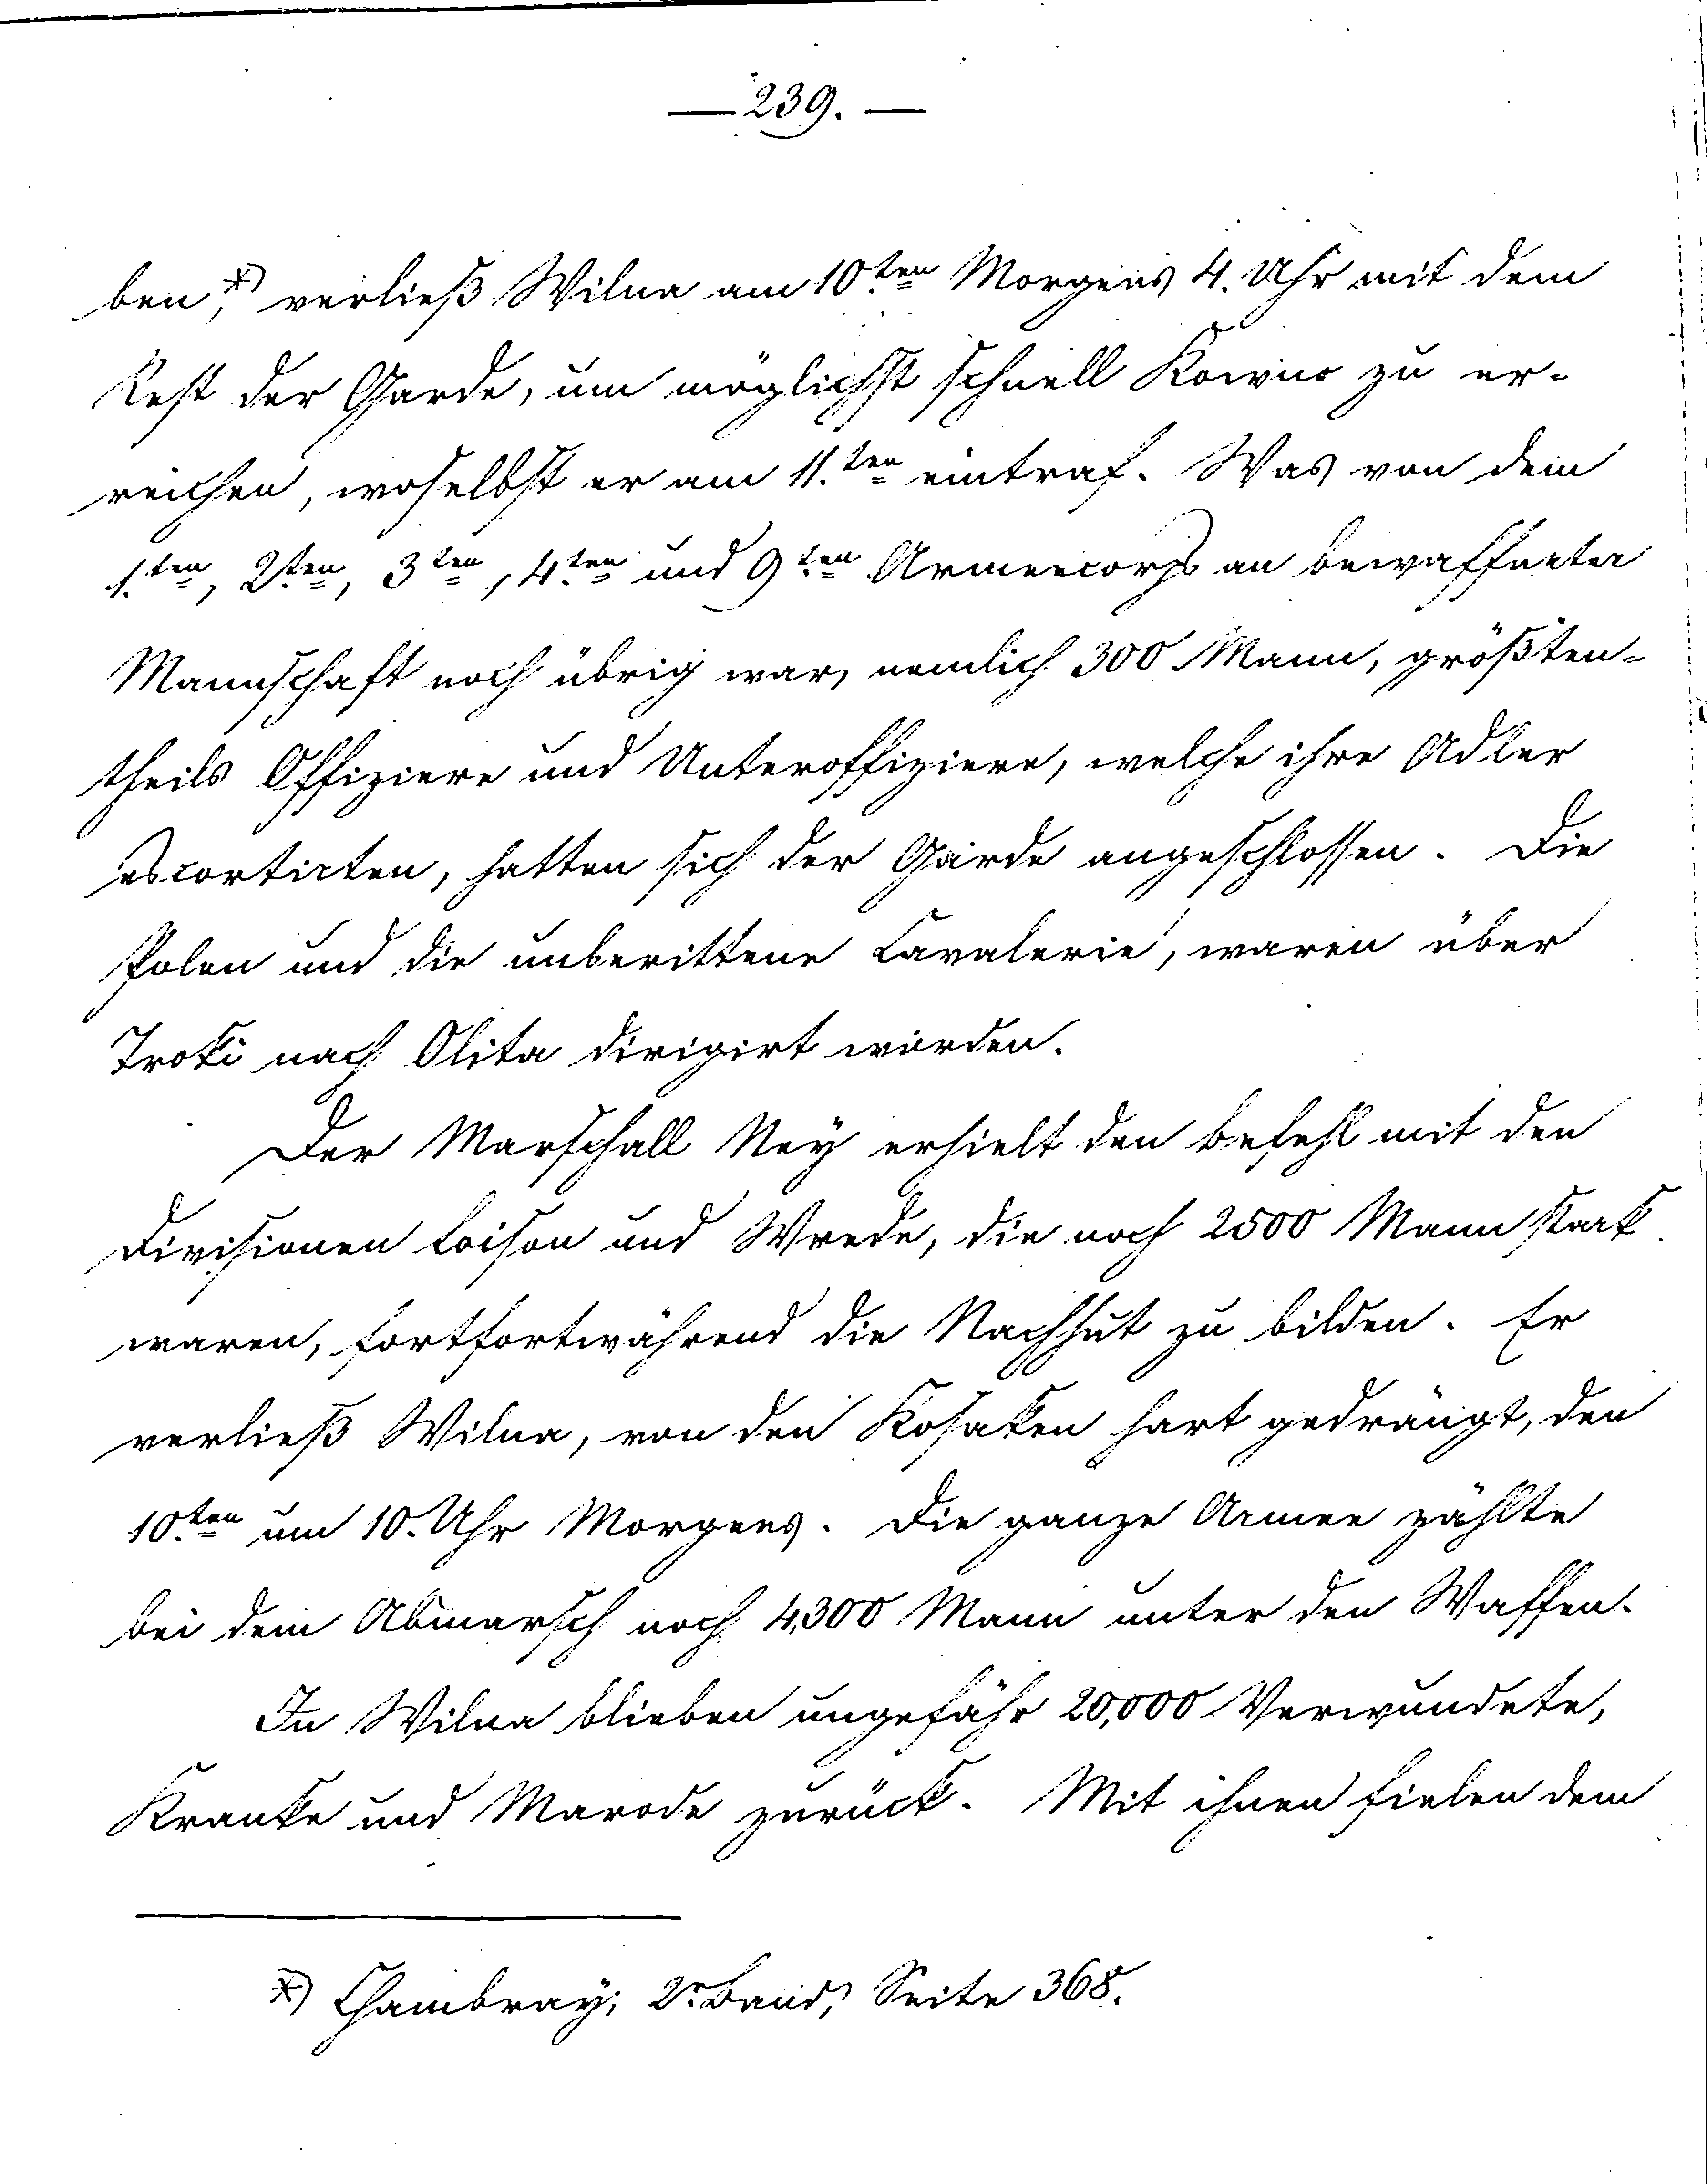 — 239. —
ben,*) verließ Wilna am 10.ten Morgens 4. Uhr mit dem
Rest der Garde, um möglichst schnell Kowno zu er-
reichen, woselbst er am 11.ten eintraf. Was von dem
1.ten, 2.ten, 3ten, 4.ten und 9.ten Armeecorps an bewaffneter
Mannschaft noch übrig war, nemlich 300 Mann, größten-
theils Offiziere und Unteroffiziere, welche ihre Adler
escortirten, hatten sich der Garde angeschlossen. Die
Polen und die unberittene Cavalerie, waren über
Troki nach Olita dirigirt worden.
Der Marschall Ney erhielt den Befehl mit den
Divisionen Loison und Wrede, die noch 2500 Mann stark
waren, fortfortwährend die Nachhut zu bilden. Er
verließ Wilna, von den Kosaken hart gedrängt, den
10.ten um 10. Uhr Morgens. Die ganze Armee zählte
bei dem Abmarsch noch 4,300 Mann unter den Waffen.
In Wilna blieben ungefähr 20,000 Verwundete,
Kranke und Marode zurück. Mit ihnen fielen dem
*) Chambray; 2r. Band, Seite 368.